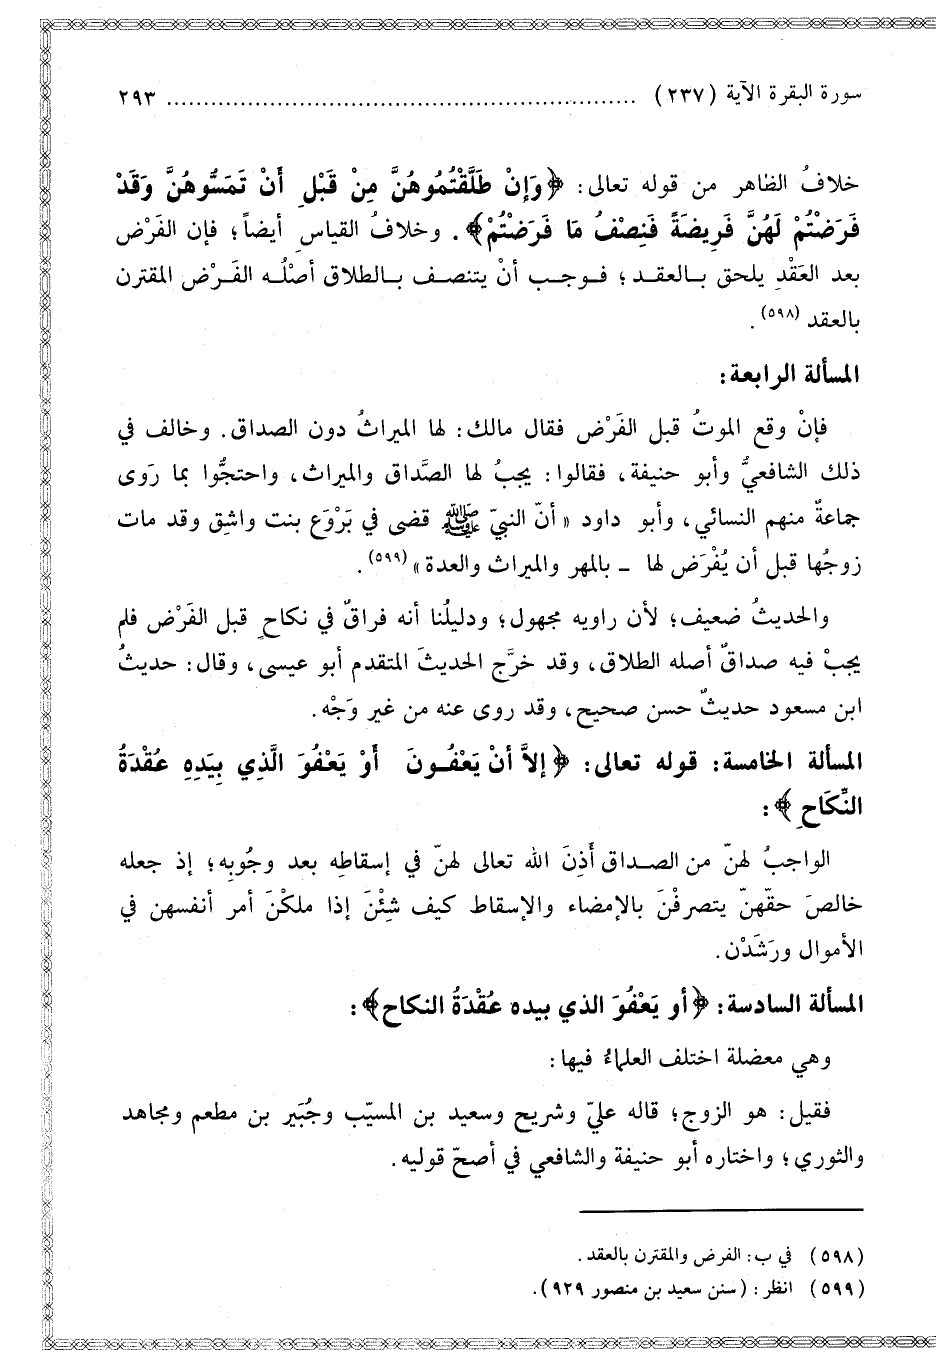 سورة البقرة الآية (٢٣٧) ................................................................ ٢٩٣
خلافُ الظاهر من قوله تعالى: ﴿وَإِنْ طَلَّقْتُمُوهُنَّ مِنْ قَبْلِ أَنْ تَمَسُّوهُنَّ وَقَدْ
فَرَضْتُمْ لَهُنَّ فَرِيضَةً فَنِصْفُ مَا فَرَضْتُمْ﴾. وخلافُ القياس أيضاً؛ فإن الفَرْض
بعد العَقْدِ يلحق بالعقد؛ فوجب أنْ يتنصف بالطلاق أصْلُه الفَرْض المقترن
بالعقد (٥٩٨).
المسألة الرابعة:
فإنْ وقع الموتُ قبل الفَرْض فقال مالك: لها الميراثُ دون الصداق. وخالف في
ذلك الشافعيُّ وأبو حنيفة، فقالوا: يجبُ لها الصَّداق والميراث، واحتجُّوا بما رَوى
جماعةٌ منهم النسائي، وأبو داود «أنّ النبيّ ﷺ قضى في بَرْوَع بنت واشِق وقد مات
زوجُها قبل أن يُفْرَض لها ـ بالمهر والميراث والعدة» (٥٩٩).
والحديثُ ضعيف؛ لأن راويه مجهول؛ ودليلُنا أنه فراقٌ في نكاحٍ قبل الفَرْض فلم
يجبْ فيه صداقٌ أصله الطلاق، وقد خرَّج الحديثَ المتقدم أبو عيسى، وقال: حديثُ
ابن مسعود حديثٌ حسن صحيح، وقد روى عنه من غير وَجْه.
المسألة الخامسة: قوله تعالى: ﴿إلاَّ أنْ يَعْفُونَ أَوْ يَعْفُوَ الَّذِي بِيَدِهِ عُقْدَةُ
النِّكَاحِ﴾:
الواجبُ لهنّ من الصداق أَذِنَ الله تعالى لهنّ في إسقاطِه بعد وجُوبِه؛ إذ جعله
خالصَ حقّهنّ يتصرفْنَ بالإمضاء والإسقاط كيف شِئْنَ إذا ملكْنَ أمر أنفسهن في
الأموال ورَشَدْن.
المسألة السادسة: ﴿أو يَعْفُوَ الذي بيده عُقْدَةُ النكاح﴾:
وهي معضلة اختلف العلماءُ فيها:
فقيل: هو الزوج؛ قاله عليّ وشريح وسعيد بن المسيّب وجُبَير بن مطعم ومجاهد
والثوري؛ واختاره أبو حنيفة والشافعي في أصحّ قوليه.
(٥٩٨) في ب: الفرض والمقترن بالعقد.
(٥٩٩) انظر: (سنن سعيد بن منصور ٩٢٩).